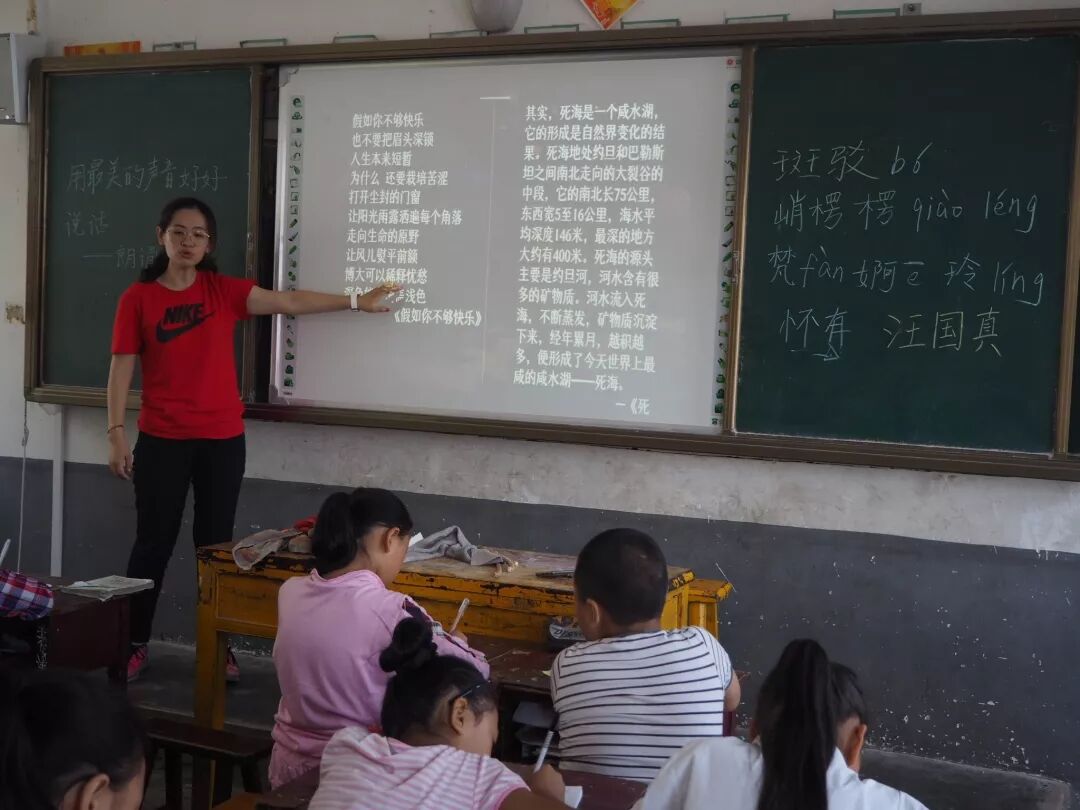 用最美的声音好好
说话
——朗诵
NIKE
假如你不够快乐
也不要把眉头深锁
人生本来短暂
为什么 还要栽培苦涩
打开尘封的门窗
让阳光雨露洒遍每个角落
走向生命的原野
让风儿熨平前额
博大可以稀释忧愁
浅色
《假如你不够快乐》
其实,死海是一个咸水湖,
它的形成是自然界变化的结
果。死海地处约旦和巴勒斯
坦之间南北走向的大裂谷的
中段,它的南北长75公里,
东西宽5至16公里,海水平
均深度146米,最深的地方
大约有400米。死海的源头
主要是约旦河,河水含有很
多的矿物质。河水流入死
海,不断蒸发,矿物质沉淀
下来,经年累月,越积越
多,便形成了今天世界上最
咸的咸水湖——死海。
—《死
斑驳 bó
峭楞楞 qiào léng
梵fàn 婀ē 玲líng
怀有 汪国真